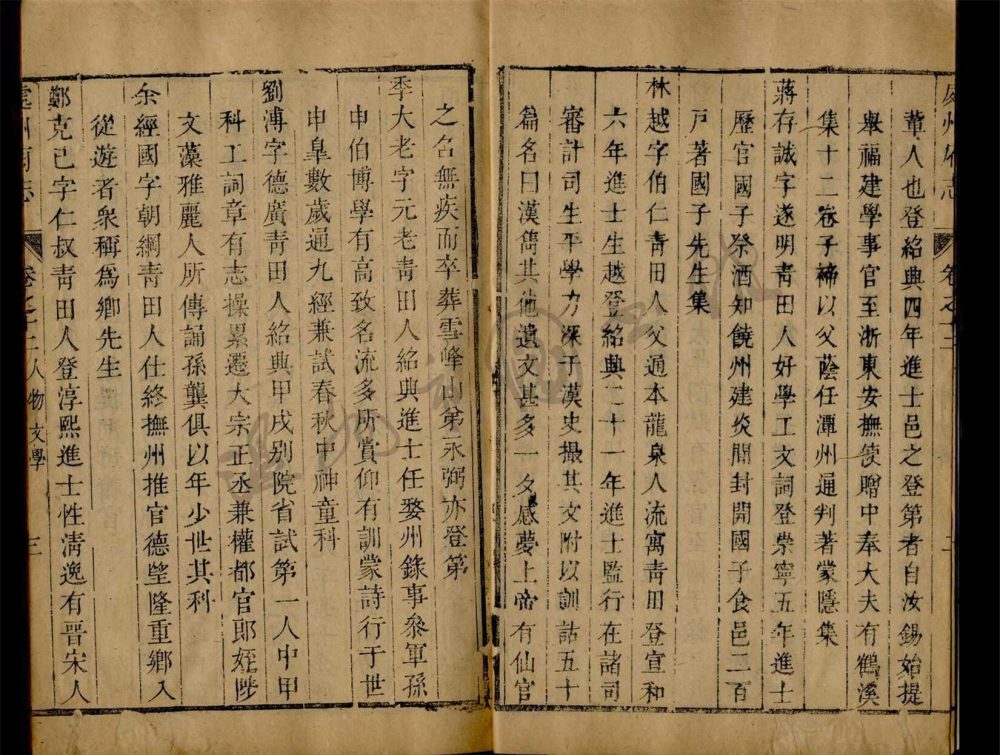 處州府志
卷之十二
二
軰人也登紹興四年進士邑之登第者自汝錫始提
舉福建學事官至浙東安撫使贈中奉大夫有鶴溪
集十二卷子褅以父蔭任潭州通判著蒙隱集
蔣存誠字遂明靑田人好學工文詞登崇寧五年進士
歷官國子祭酒知饒州建炎間封開國子食邑二百
戸著國子先生集
林越字伯仁靑田人父通本龍泉人流寓靑田登宣和
六年進士生越登紹興二十一年進士監行在諸司
審計司生平學力深于漢史撮其文附以訓詁五十
篇名曰漢雋其他遺文甚多一夕感夢上帝有仙官
之名無疾而卒葬雲峰山弟永弼亦登第
季大老字元老靑田人紹興進士任婺州錄事叅軍孫
申伯博學有高致名流多所賞仰有訓蒙詩行于世
申皐數歲通九經兼試春秋中神童科
劉溥字德廣靑田人紹興甲戌别院省試第一人中甲
科工詞章有志操累遷大宗正丞兼權都官郎姪陟
文藻雅麗人所傳誦孫龔俱以年少世其科
余經國字朝綱靑田人仕終撫州推官德望隆重鄉人
從遊者衆稱爲鄉先生
鄭克己字仁叔靑田人登淳熙進士性淸逸有晉宋人
處州府志
卷之十二人物 文學
三